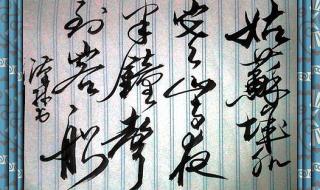 姑蘇城外
寒山寺夜
半鐘聲
到客船